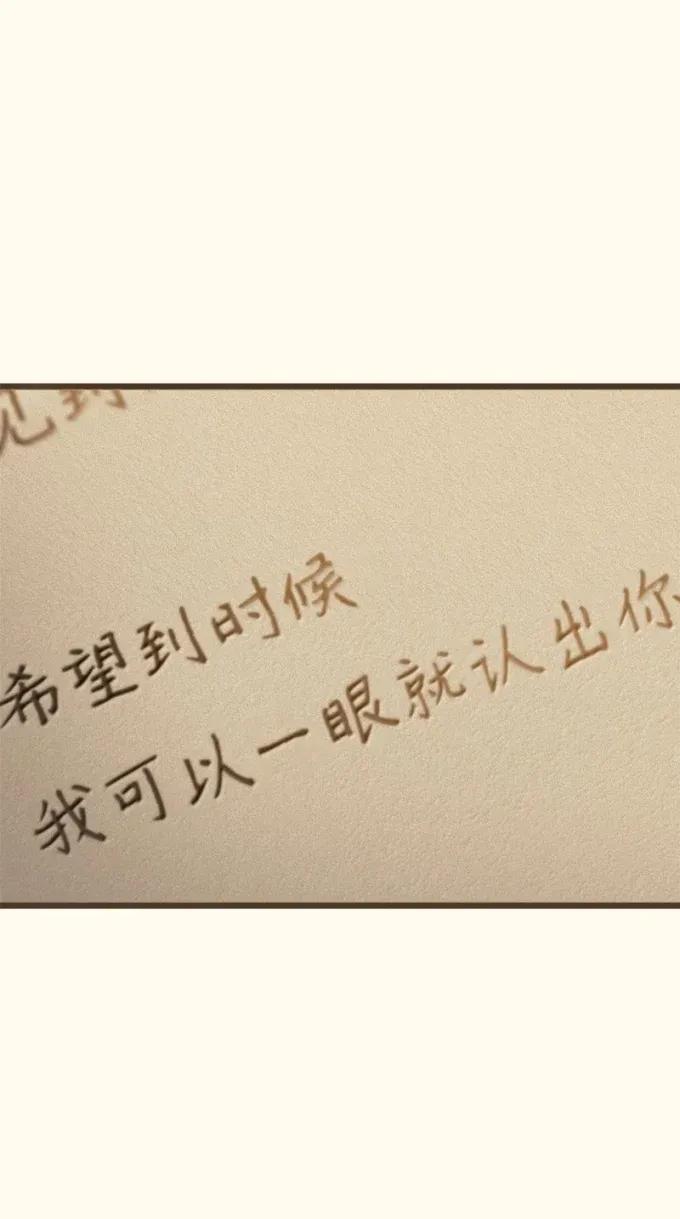 见到
希望到时候
我可以一眼就认出你